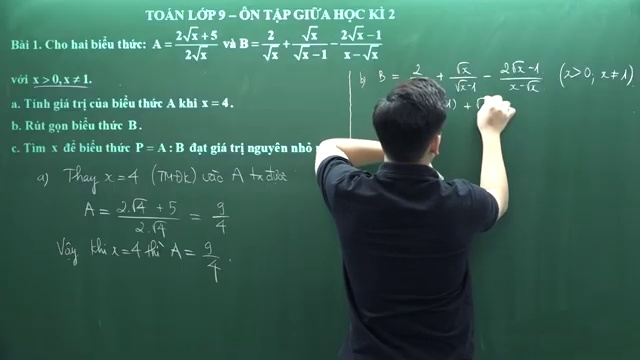 TOÁN LỚP 9 – ÔN TẬP GIỮA HỌC KÌ 2
Bài 1. Cho hai biểu thức: A = (2√x + 5)/(2√x) và B = 2/√x + √x/(√x − 1) − (2√x − 1)/(x − √x)
với x > 0, x ≠ 1.
a. Tính giá trị của biểu thức A khi x = 4.
b. Rút gọn biểu thức B.
c. Tìm x để biểu thức P = A : B đạt giá trị nguyên nhỏ
a) Thay x = 4 (TMĐK) vào A ta được
A = (2.√4 + 5)/(2.√4) = 9/4
Vậy khi x = 4 thì A = 9/4.
b) B = 2 + √x/(√x − 1) − (2√x − 1)/(x − √x) (x > 0; x ≠ 1)
1) + √